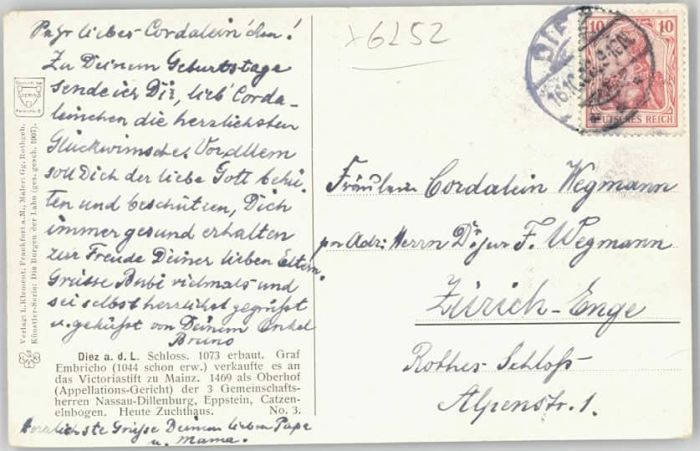 Mein liebes Cordaleinchen!
Zu Deinem Geburtstage
sende ich Dir, lieb' Corda-
leinchen die herzlichsten
Glückwünsche. Vor Allem
soll Dich der liebe Gott behü-
ten und beschützen, Dich
immer gesund erhalten
zur Freude Deiner lieben Eltern.
Grüsse Bubi vielmals und
sei selbst herzlichst gegrüßt
u. geküßt von Deinem Onkel
Bruno
Diez a. d. L. Schloss. 1073 erbaut. Graf
Embricho (1044 schon erw.) verkaufte es an
das Victoriastift zu Mainz. 1469 als Oberhof
(Appellations-Gericht) der 3 Gemeinschafts-
herren Nassau-Dillenburg, Eppstein, Catzen-
elnbogen. Heute Zuchthaus. No. 3.
Herzlichste Grüsse Deinem lieben Papa
u. Mama.
Verlag: L. Klement, Frankfurt a. M., Maler: Gg. Rothgeb.
Künstler-Serie: Die Burgen der Lahn (ges. gesch. 1907).
6252
DIEZ
10 10
DEUTSCHES REICH
Fräulein Cordalein Wegmann
pr. Adr: Herrn Dr. jur F. Wegmann
Zürich-Enge
Rothes-Schloß
Alpenstr. 1.